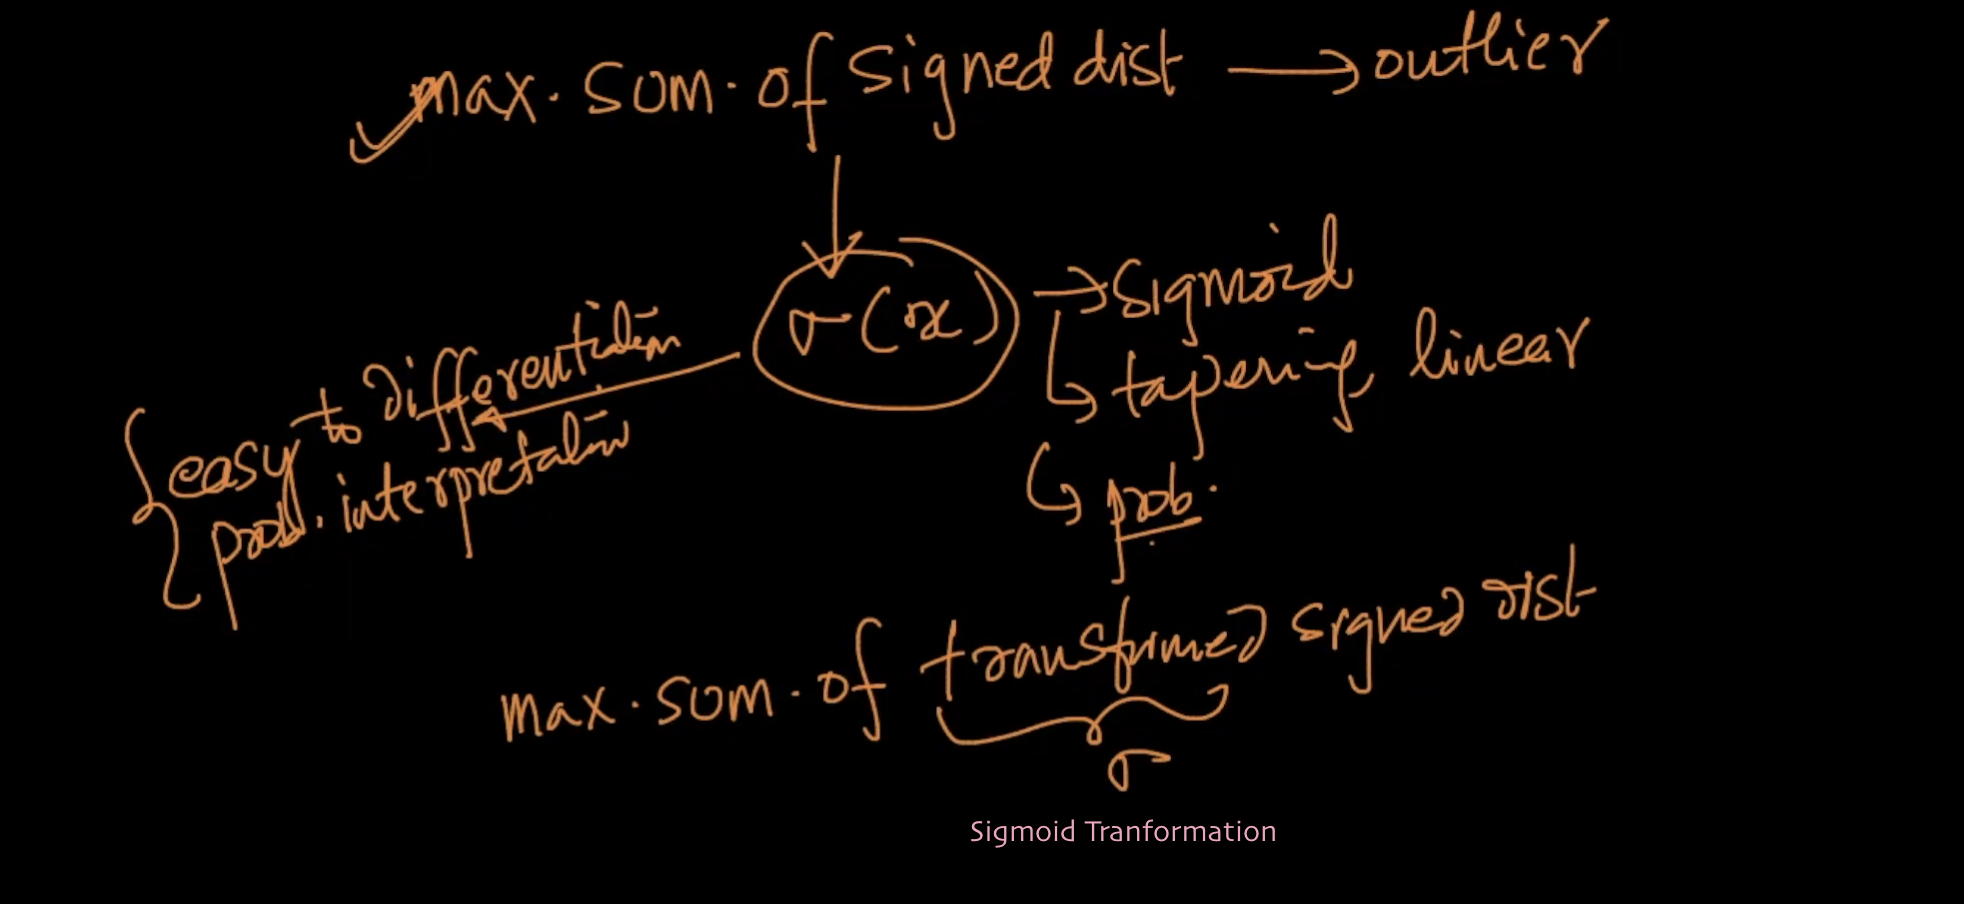 max. sum. of signed dist → outlier
σ(x) → sigmoid
↳ tapering, linear
↳ prob.
easy to differentiation
prob. interpretation
max. sum. of transformed signed dist
σ
Sigmoid Tranformation